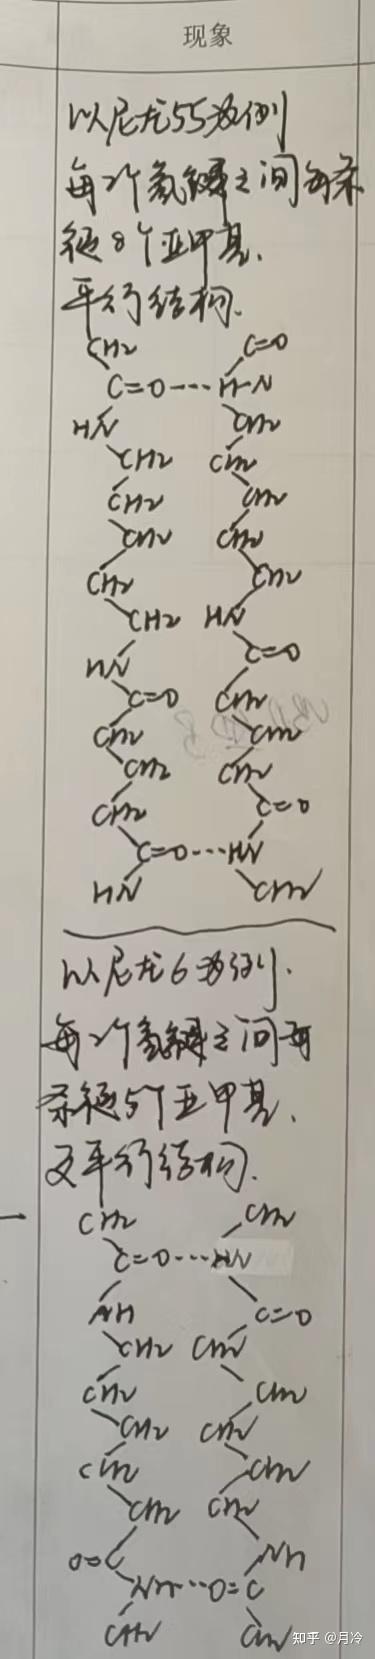 现象
以尼龙55为例
每2个氢键之间每条
链8个亚甲基.
平行结构.
CH2 C=O
C=O---H-N
HN CH2
CH2 CH2
CH2 CH2
CH2 CH2
CH2 CH2
CH2 HN
HN C=O
C=O CH2
CH2 CH2
CH2 CH2
CH2 C=O
C=O---HN
HN CH2
以尼龙6为例.
每2个氢键之间每
条链5个亚甲基.
反平行结构.
CH2 CH2
C=O---HN
NH C=O
CH2 CH2
CH2 CH2
CH2 CH2
CH2 CH2
CH2 CH2
O=C NH
NH---O=C
CH2 CH2
知乎 @月冷